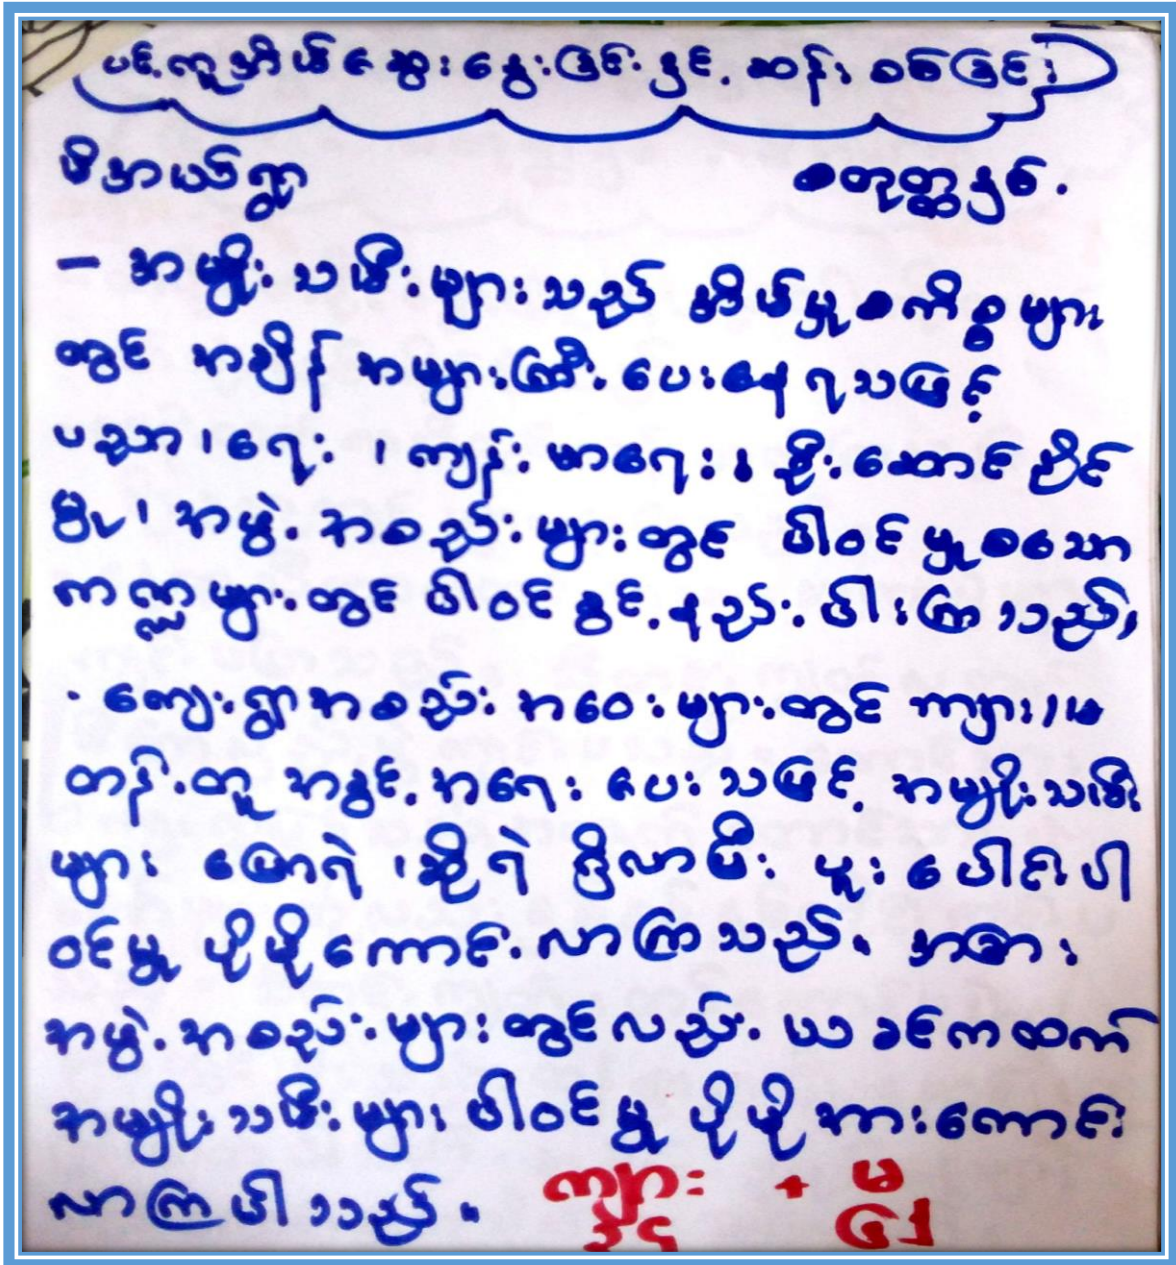 ပင့်ကူအိမ်ဆွေးနွေးခြင်းနှင့် ဆန်းစစ်ခြင်း
ဖိအယ်ရွာ စတုတ္ထနှစ်.
- အမျိုးသမီးများသည် အိမ်မှုစကိစ္စများ
တွင် အချိန်အများကြီး ပေးနေရသဖြင့်
ပညာရေး၊ ကျန်းမာရေး၊ ဦးဆောင်နိုင်
မှု၊ အဖွဲ့အစည်းများတွင် ပါဝင်မှုစသော
ကဏ္ဍများတွင် ပါဝင်ခွင့်နည်းပါးကြသည်၊
· ကျေးရွာအစည်းအဝေးများတွင် ကျား၊မ
တန်းတူ အခွင့်အရေးပေးသဖြင့် အမျိုးသမီး
များ ပြောရဲ၊ ဆိုရဲ ရှိလာပြီး ပူးပေါင်းပါ
ဝင်မှု ပိုမိုကောင်းလာကြသည်။ အခြား
အဖွဲ့အစည်းများတွင်လည်း ယခင်ကထက်
အမျိုးသမီးများ ပါဝင်မှု ပိုမိုအားကောင်း
လာကြပါသည်။ ကျား + မ
၃၄ ၆၅